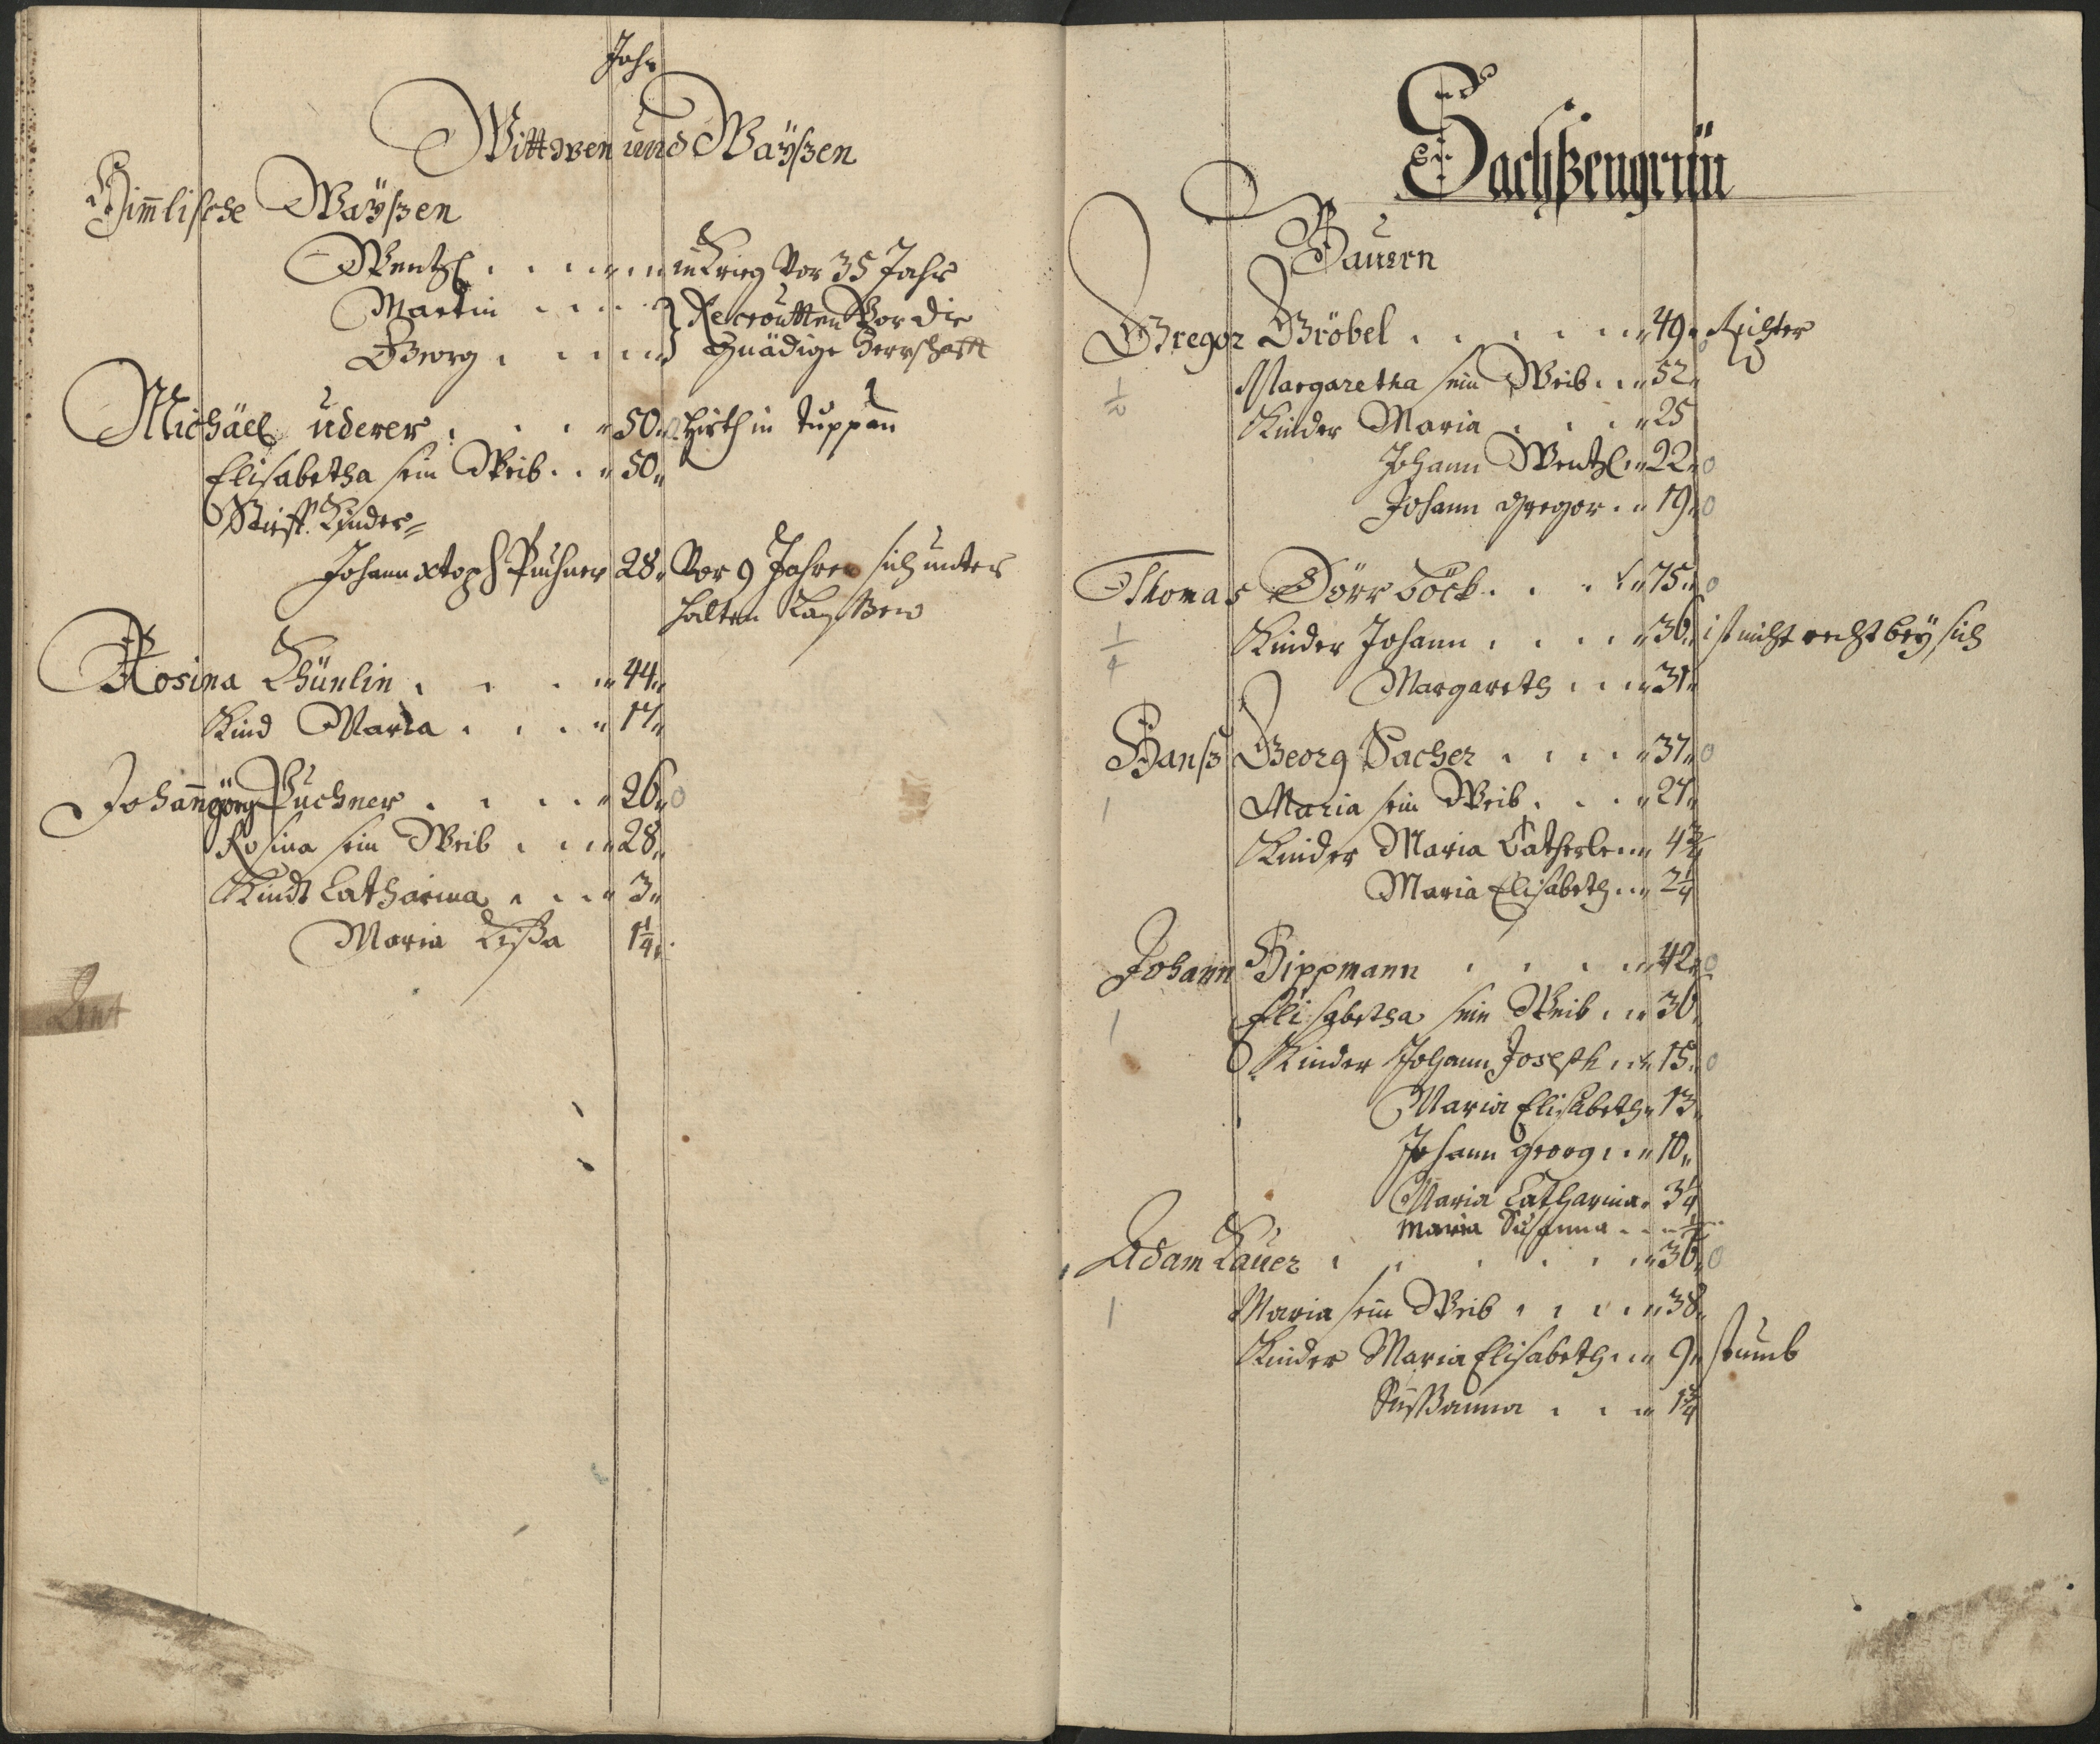 Jahr
Wittwen und Waÿßen
Him̄lische Waÿßen
Wentzl . . . . in Krieg Vor 35 Jahr
Martin . . . . } Recroutten Vor die
Georg . . . . } Gnädige Herrschafft
Michäel Uderer . . . 50. Hirth in Tuppau
Elisabetha sein Weib . . 50.
Stieff Kinder
Johann Xtoph Puchner 28. Vor 9 Jahren sich unter
halten Laßen
Rosina Thünlin . . . . 44.
Kind Maria . . . . 17.
Johan̄ görg Puchner . . . . 26. o
Rosina sein Weib . . . 28.
Kindt Catharina . . . 3.
Maria Lissa 1¼.
Sachßengrün
Bauern
Gregor Gröbel . . . . . 49. Richter
½ Margaretha sein Weib . . 52.
Kinder Maria . . . 25
Johann Wentzl . 22. o
Johann Gregor . . 19. o
Thomas Dörrböck . . . 75. o
¼ Kinder Johann . . . . 30. ist nicht recht beÿ sich
Margareth . . . 31.
Hanß Georg Pacher . . . . 37. o
1 Maria sein Weib . . . 27.
Kinder Maria Catherle . . 4¾
Maria Elisabeth . . 2¼
Johann Hippmann . . . . 42. o
1 Elisabetha sein Weib . . 30.
Kinder Johann Joseph . . 15. o
Maria Elisabeth . 13.
Johann Georg . . . 10.
Maria Catharina . 3¼
Maria Susanna . . .
Adam Lauer . . . . . . 36. o
1 Maria sein Weib . . . . 38.
Kinder Maria Elisabeth . . 9. stumb
Sußanna . . . 1¾